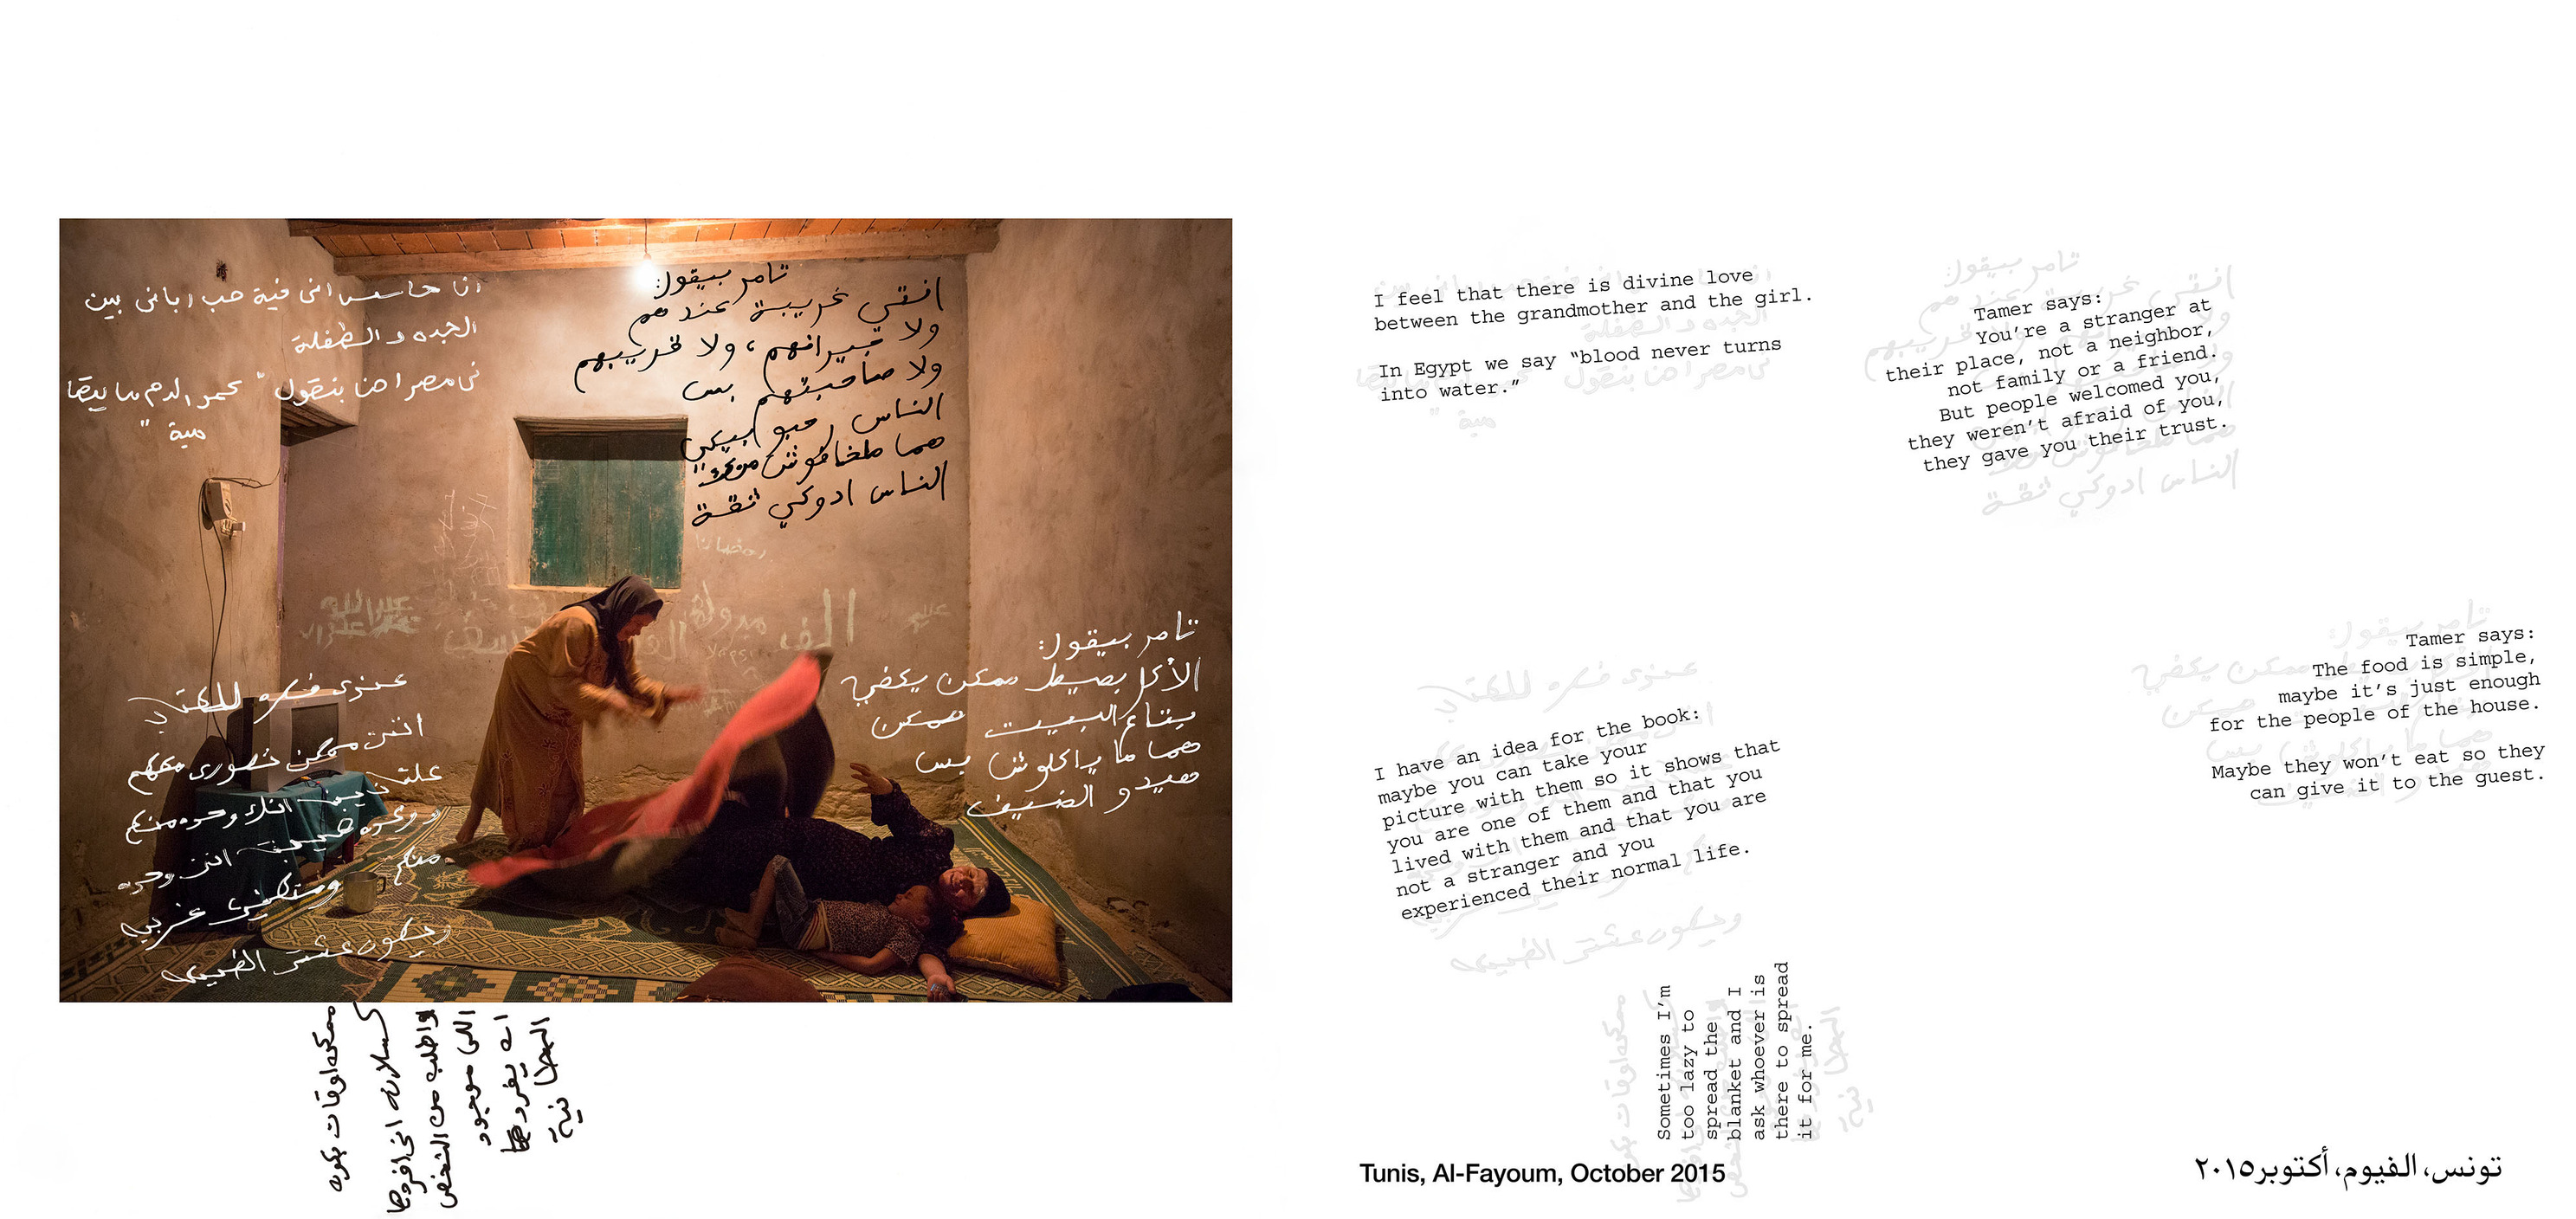 انا حاسس انى فية حب ربانى بين
الجده و الطفلة
فى مصر احنا بنقول " عمر الدم ما يبقا
مية "
تامر بيقول:
انتي غريبة عندهم
ولا جيرانهم، ولا قريبهم
ولا صاحبتهم بس
الناس رحبو بيكي
هما ماخافوش منك
الناس ادوكي ثقة
تامر بيقول:
الأكل بسيط ممكن يكفي
بتاع البيت ممكن
هما ما ياكلوش بس
هيدو الضيف
عندى فكره للكتاب
انتى ممكن تصورى معاهم
علشان يبين انك وحده منهم
منهم
غريبه
عشتى الطبيعيه
ممكن اوقات بكون
كسلان انى افردها
واطلب من الشخص
اللى موجود
انه يفردها
البطانية
I feel that there is divine love
between the grandmother and the girl.
In Egypt we say “blood never turns
into water.”
Tamer says:
You’re a stranger at
their place, not a neighbor,
not family or a friend.
But people welcomed you,
they weren’t afraid of you,
they gave you their trust.
Tamer says:
The food is simple,
maybe it’s just enough
for the people of the house.
Maybe they won’t eat so they
can give it to the guest.
I have an idea for the book:
maybe you can take your
picture with them so it shows that
you are one of them and that you
lived with them and that you are
not a stranger and you
experienced their normal life.
Sometimes I’m
too lazy to
spread the
blanket and I
ask whoever is
there to spread
it for me.
Tunis, Al-Fayoum, October 2015
تونس، الفيوم، أكتوبر٢٠١٥